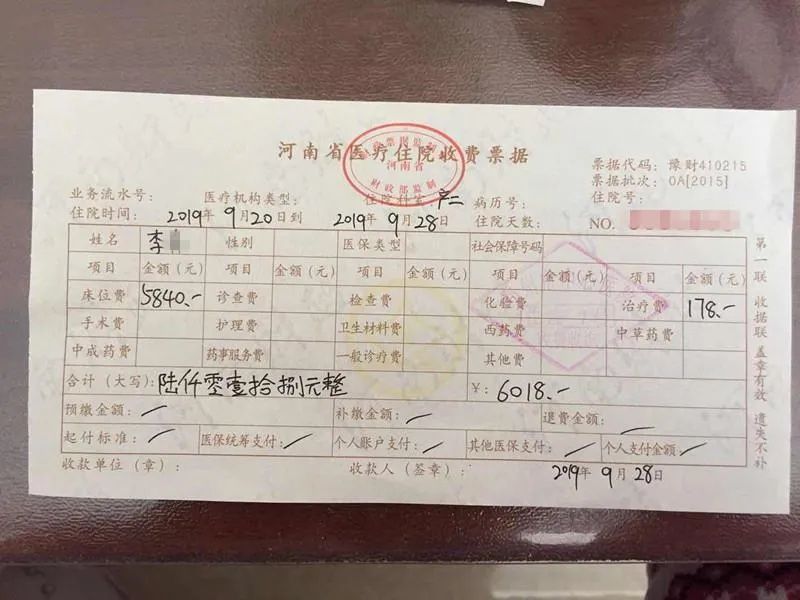 河南省医疗住院收费票据
河南省
财政部监制
票据代码：豫财410215
票据批次：0A[2015]
业务流水号： 医疗机构类型： 住院科室：产二 病历号： 住院号：
住院时间： 2019年9月20日到 2019年9月28日 住院天数： NO.
姓名 李 性别 医保类型 社会保障号码
项目 金额（元） 项目 金额（元） 项目 金额（元） 项目 金额（元） 项目 金额（元）
床位费 5840.- 诊查费 检查费 化验费 治疗费 178.-
手术费 护理费 卫生材料费 西药费 中草药费
中成药费 药事服务费 一般诊疗费 其他费
合计（大写）：陆仟零壹拾捌元整 ¥：6018.-
预缴金额： 补缴金额： 退费金额：
起付标准： 医保统筹支付： 个人账户支付： 其他医保支付： 个人支付金额：
收款单位（章）： 收款人（签章）： 2019年9月28日
第一联 收据联 盖章有效 遗失不补